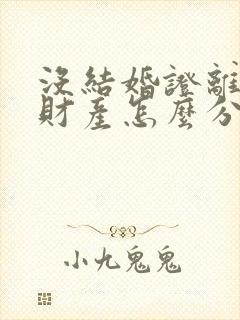 沒結婚證離
財產怎麼分
小九鬼鬼